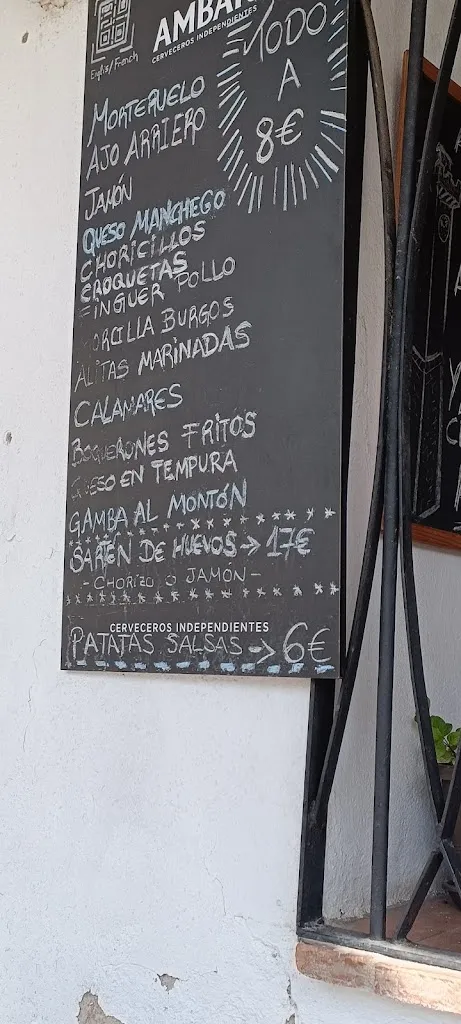 AMBAR
CERVECEROS INDEPENDIENTES
English/French
TODO
A
8€
MORTERUELO
AJO ARRIERO
JAMÓN
QUESO MANCHEGO
CHORICILLOS
CROQUETAS
FINGUER POLLO
MORCILLA BURGOS
ALITAS MARINADAS
CALAMARES
BOQUERONES FRITOS
QUESO EN TEMPURA
GAMBA AL MONTÓN
SARTÉN DE HUEVOS → 17€
- CHORIZO O JAMÓN -
CERVECEROS INDEPENDIENTES
PATATAS SALSAS → 6€